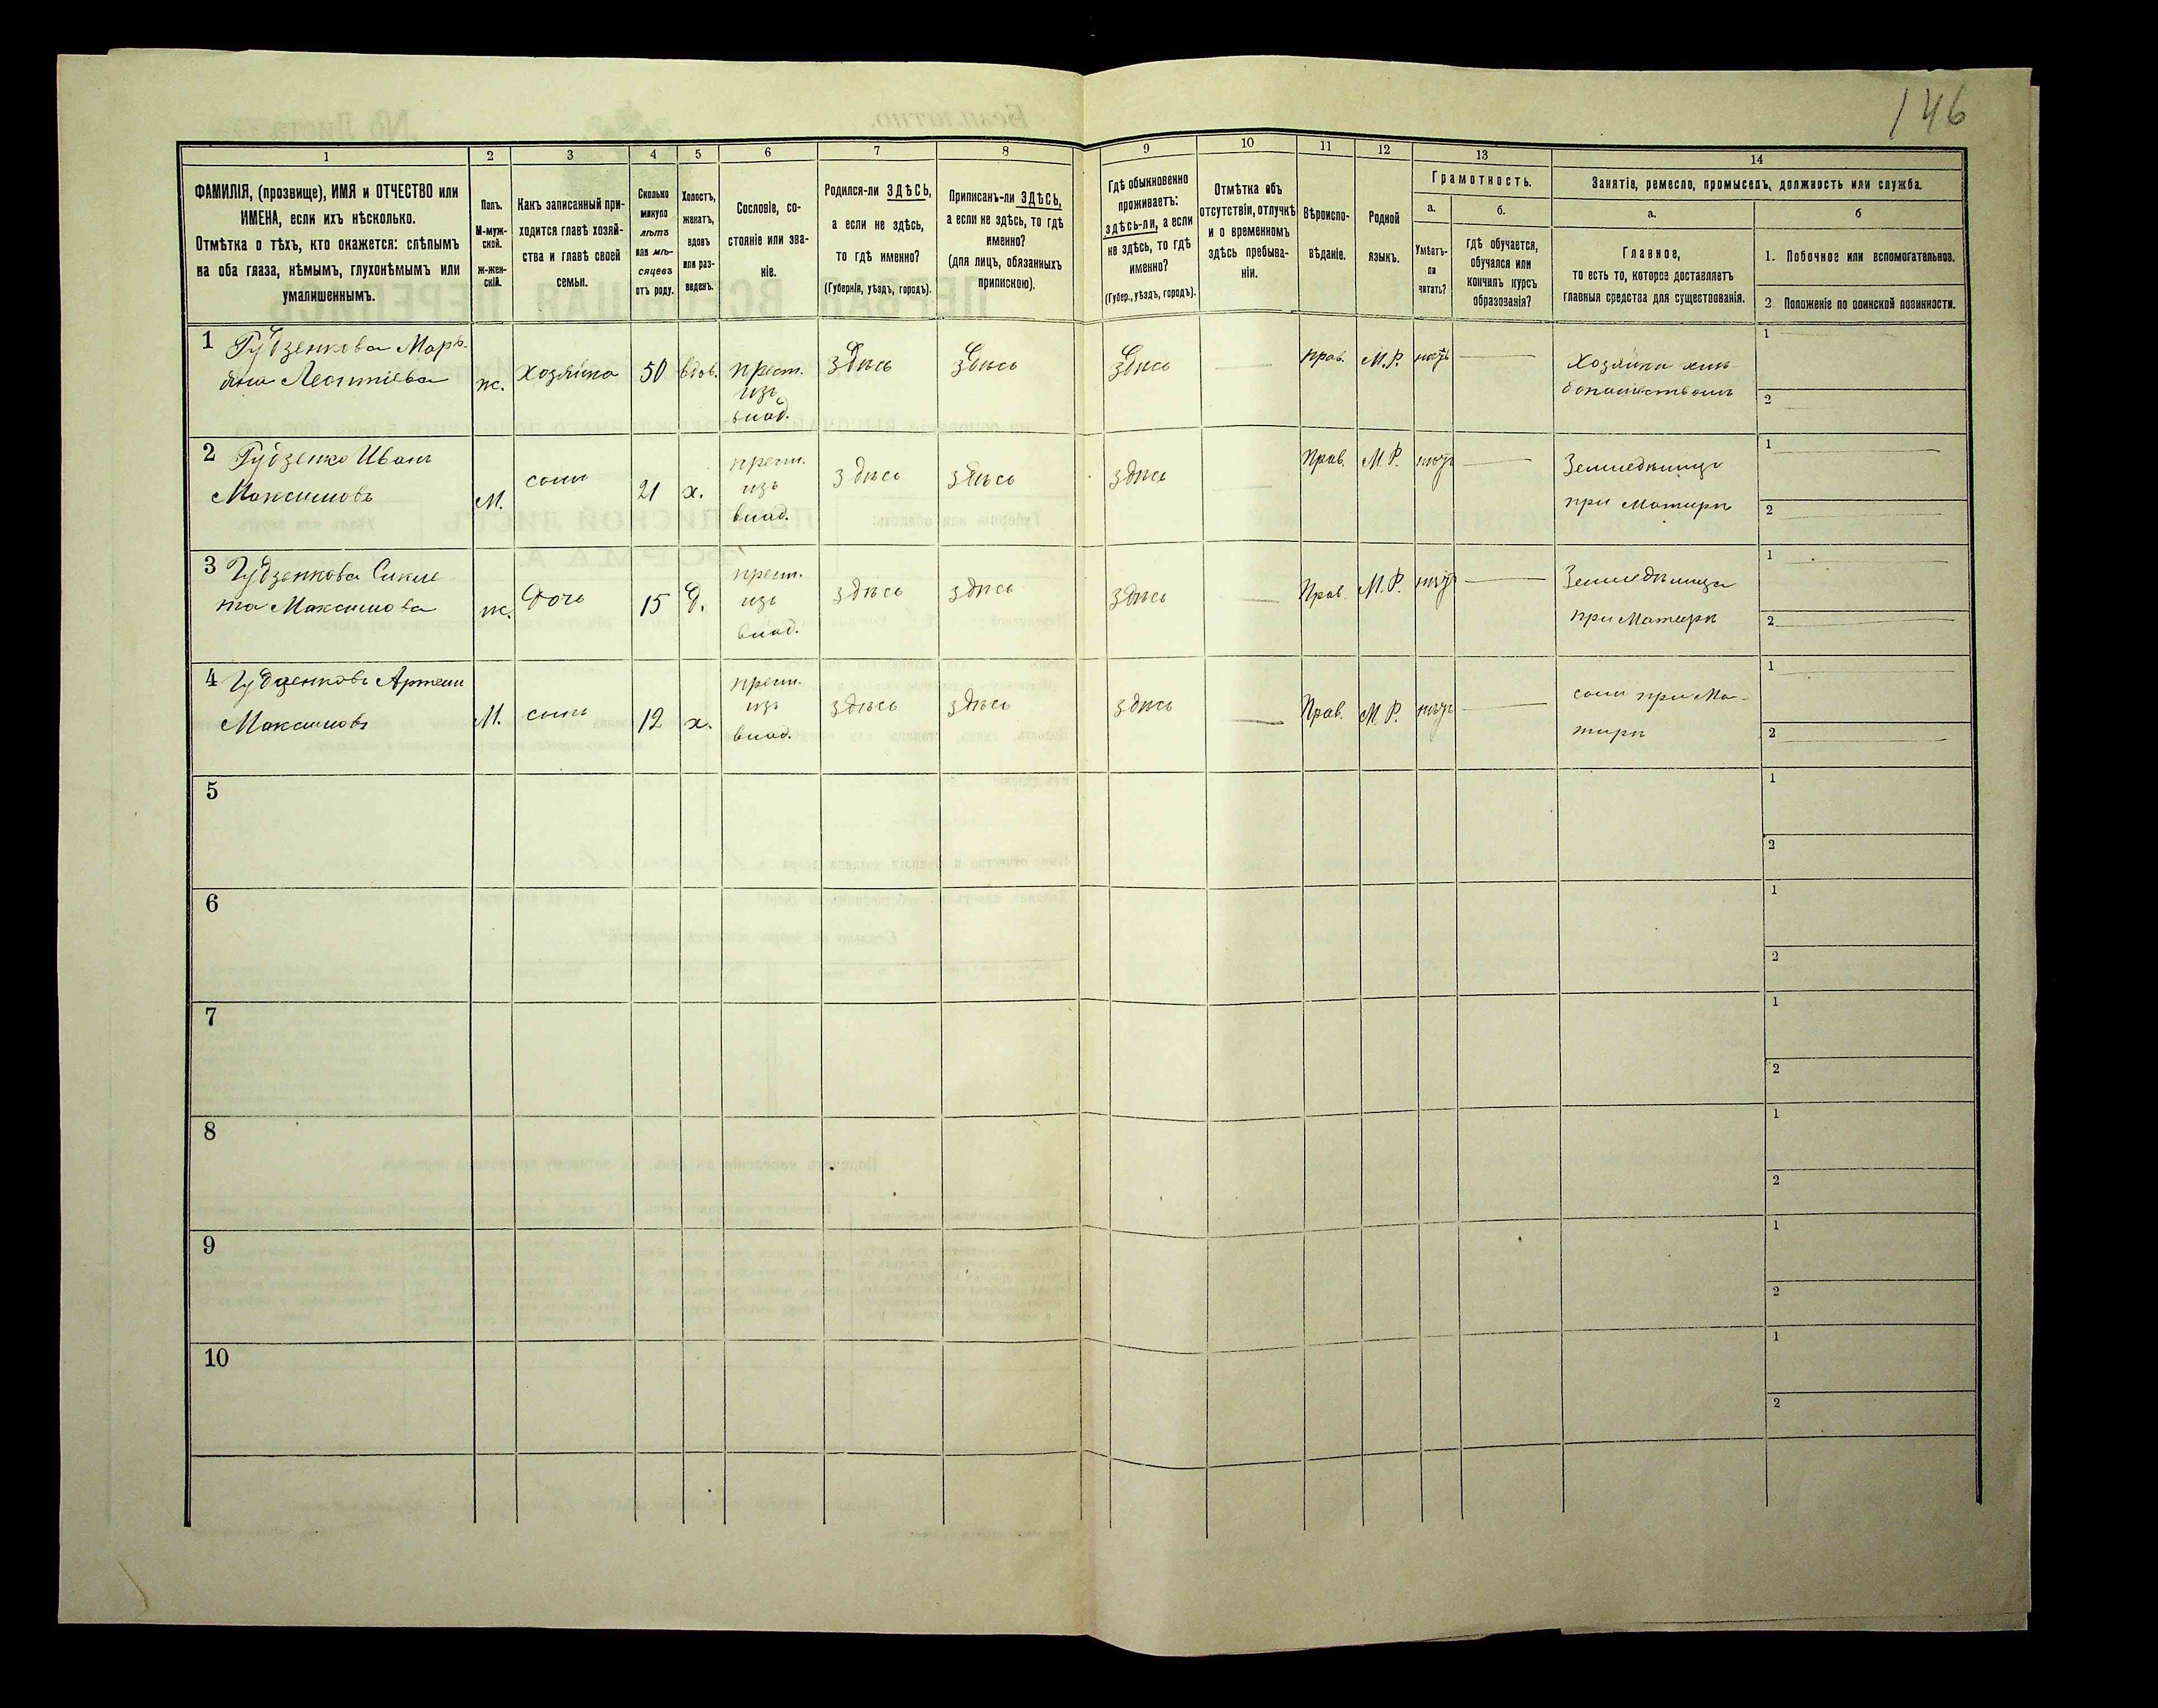 146
1 2 3 4 5 6 7 8 9 10 11 12 13 14
ФАМИЛІЯ, (прозвище), ИМЯ и ОТЧЕСТВО или
ИМЕНА, если ихъ нѣсколько.
Отмѣтка о тѣхъ, кто окажется: слѣпымъ
на оба глаза, нѣмымъ, глухонѣмымъ или
умалишеннымъ.
Полъ.
М-муж-
ской.
Ж-жен-
скій.
Какъ записанный при-
ходится главѣ хозяй-
ства и главѣ своей
семьи.
Сколько
минуло
лѣтъ
или мѣ-
сяцевъ
отъ роду.
Холостъ,
женатъ,
вдовъ
или раз-
веденъ.
Сословіе, со-
стояніе или зва-
ніе.
Родился-ли ЗДѢСЬ,
а если не здѣсь,
то гдѣ именно?
(Губернія, уѣздъ, городъ).
Приписанъ-ли ЗДѢСЬ,
а если не здѣсь, то гдѣ
именно?
(для лицъ, обязанныхъ
припискою).
Гдѣ обыкновенно
проживаетъ:
здѣсь-ли, а если
не здѣсь, то гдѣ
именно?
(Губер., уѣздъ, городъ).
Отмѣтка объ
отсутствіи, отлучкѣ
и о временномъ
здѣсь пребыва-
ніи.
Вѣроиспо-
вѣданіе.
Родной
языкъ.
Грамотность.
а.
Умѣетъ-
ли
читать?
б.
гдѣ обучается,
обучался или
кончилъ курсъ
образованія?
Занятіе, ремесло, промыселъ, должность или служба.
а.
Главное,
то есть то, которое доставляетъ
главныя средства для существованія.
б
1. Побочное или вспомогательное.
2. Положеніе по воинской повинности.
1 Гудзенкова Марь-
яна Леонтіева
ж.
хозяйка
50
вдов.
крест.
изъ
влад.
здѣсь
здѣсь
здѣсь
прав.
М.Р.
нѣтъ
Хозяйка
1
2
2 Гудзенко Иванъ
Максимовъ
М.
сынъ
21
х.
крест.
изъ
влад.
здѣсь
здѣсь
здѣсь
Прав.
М.Р.
нѣтъ
Земледѣлецъ
при Матери
1
2
3 Гудзенкова
Максимова
ж.
Дочь
15
д.
крест.
изъ
влад.
здѣсь
здѣсь
здѣсь
Прав.
М.Р.
нѣтъ
Земледѣлица
при Матери
1
2
4 Гудзенковъ Артемъ
Максимовъ
М.
сынъ
12
х.
крест.
изъ
влад.
здѣсь
здѣсь
здѣсь
Прав.
М.Р.
нѣтъ
сынъ при Ма-
тери
1
2
5
1
2
6
1
2
7
1
2
8
1
2
9
1
2
10
1
2